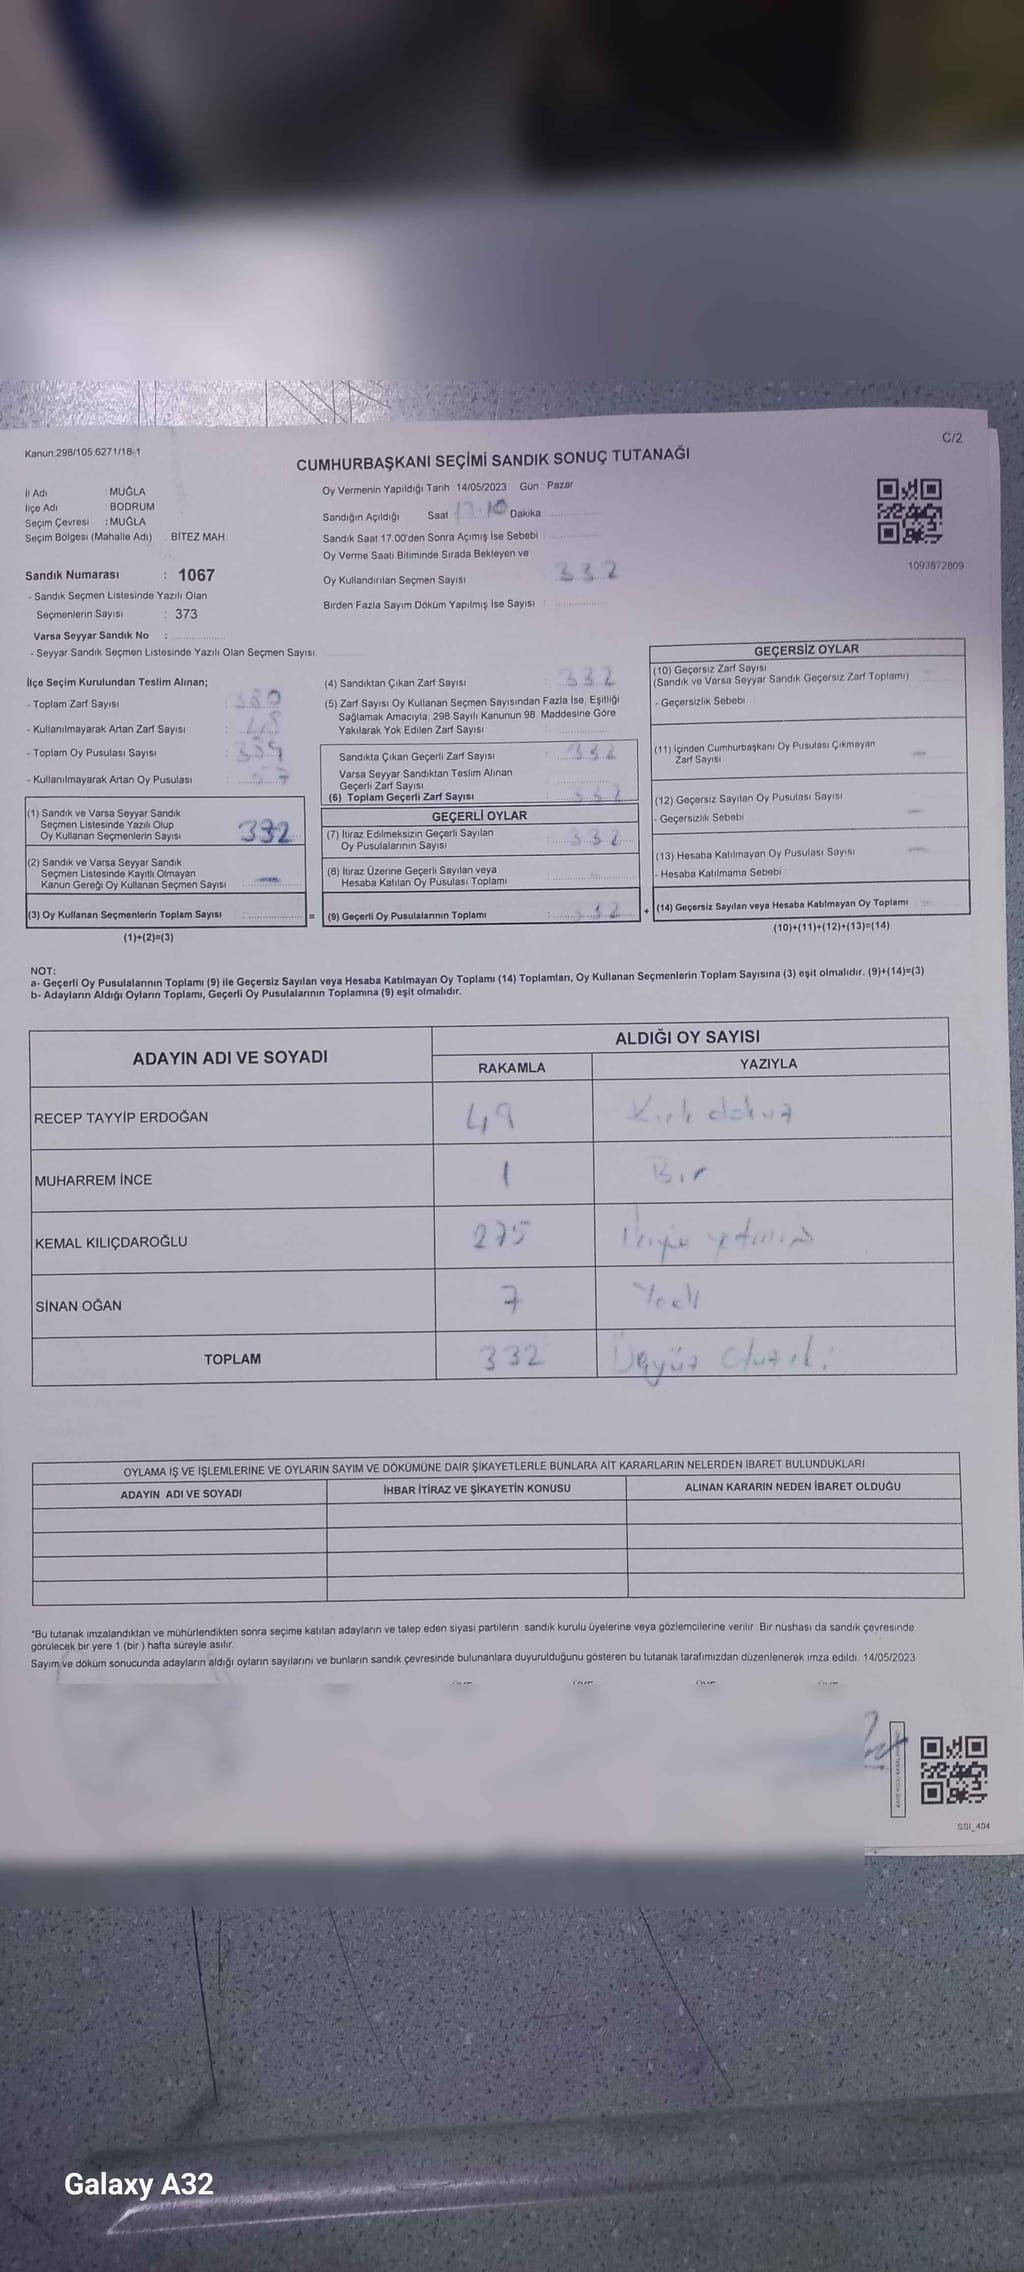 Kanun 298/105 6271/18-1
C/2
CUMHURBAŞKANI SEÇİMİ SANDIK SONUÇ TUTANAĞI
İl Adı : MUĞLA
İlçe Adı : BODRUM
Seçim Çevresi : MUĞLA
Seçim Bölgesi (Mahalle Adı) : BİTEZ MAH.
Oy Vermenin Yapıldığı Tarih 14/05/2023 Gün Pazar
Sandığın Açıldığı Saat Dakika
Sandık Saat 17.00'den Sonra Açımış İse Sebebi
Oy Verme Saati Bitiminde Sırada Bekleyen ve
Oy Kullandırılan Seçmen Sayısı 332
Birden Fazla Sayım Döküm Yapılmış İse Sayısı :
1093872809
Sandık Numarası : 1067
- Sandık Seçmen Listesinde Yazılı Olan
Seçmenlerin Sayısı : 373
Varsa Seyyar Sandık No :
- Seyyar Sandık Seçmen Listesinde Yazılı Olan Seçmen Sayısı:
İlçe Seçim Kurulundan Teslim Alınan;
- Toplam Zarf Sayısı : 380
- Kullanılmayarak Artan Zarf Sayısı : 48
- Toplam Oy Pusulası Sayısı :
- Kullanılmayarak Artan Oy Pusulası :
(1) Sandık ve Varsa Seyyar Sandık
Seçmen Listesinde Yazılı Olup
Oy Kullanan Seçmenlerin Sayısı 332
(2) Sandık ve Varsa Seyyar Sandık
Seçmen Listesinde Kayıtlı Olmayan
Kanun Gereği Oy Kullanan Seçmen Sayısı : —
(3) Oy Kullanan Seçmenlerin Toplam Sayısı : =
(1)+(2)=(3)
(4) Sandıktan Çıkan Zarf Sayısı : 332
(5) Zarf Sayısı Oy Kullanan Seçmen Sayısından Fazla İse, Eşitliği
Sağlamak Amacıyla, 298 Sayılı Kanunun 98. Maddesine Göre
Yakılarak Yok Edilen Zarf Sayısı :
Sandıkta Çıkan Geçerli Zarf Sayısı : 332
Varsa Seyyar Sandıktan Teslim Alınan
Geçerli Zarf Sayısı
(6) Toplam Geçerli Zarf Sayısı : 332
GEÇERLİ OYLAR
(7) İtiraz Edilmeksizin Geçerli Sayılan
Oy Pusulalarının Sayısı : 332
(8) İtiraz Üzerine Geçerli Sayılan veya
Hesaba Katılan Oy Pusulası Toplamı : —
(9) Geçerli Oy Pusulalarının Toplamı : 332 +
GEÇERSİZ OYLAR
(10) Geçersiz Zarf Sayısı
(Sandık ve Varsa Seyyar Sandık Geçersiz Zarf Toplamı)
- Geçersizlik Sebebi
(11) İçinden Cumhurbaşkanı Oy Pusulası Çıkmayan
Zarf Sayısı —
(12) Geçersiz Sayılan Oy Pusulası Sayısı
- Geçersizlik Sebebi —
(13) Hesaba Katılmayan Oy Pusulası Sayısı —
- Hesaba Katılmama Sebebi
(14) Geçersiz Sayılan veya Hesaba Katılmayan Oy Toplamı —
(10)+(11)+(12)+(13)=(14)
NOT:
a- Geçerli Oy Pusulalarının Toplamı (9) ile Geçersiz Sayılan veya Hesaba Katılmayan Oy Toplamı (14) Toplamları, Oy Kullanan Seçmenlerin Toplam Sayısına (3) eşit olmalıdır. (9)+(14)=(3)
b- Adayların Aldığı Oyların Toplamı, Geçerli Oy Pusulalarının Toplamına (9) eşit olmalıdır.
ADAYIN ADI VE SOYADI
ALDIĞI OY SAYISI
RAKAMLA YAZIYLA
RECEP TAYYİP ERDOĞAN 49 Kırk dokuz
MUHARREM İNCE 1 Bir
KEMAL KILIÇDAROĞLU 275
SİNAN OĞAN 7 Yedi
TOPLAM 332 Üçyüz otuz iki
OYLAMA İŞ VE İŞLEMLERİNE VE OYLARIN SAYIM VE DÖKÜMÜNE DAİR ŞİKAYETLERLE BUNLARA AİT KARARLARIN NELERDEN İBARET BULUNDUKLARI
ADAYIN ADI VE SOYADI İHBAR İTİRAZ VE ŞİKAYETİN KONUSU ALINAN KARARIN NEDEN İBARET OLDUĞU
*Bu tutanak imzalandıktan ve mühürlendikten sonra seçime katılan adayların ve talep eden siyasi partilerin sandık kurulu üyelerine veya gözlemcilerine verilir. Bir nüshası da sandık çevresinde
görülecek bir yere 1 (bir) hafta süreyle asılır.
Sayım ve döküm sonucunda adayların aldığı oyların sayılarını ve bunların sandık çevresinde bulunanlara duyurulduğunu gösteren bu tutanak tarafımızdan düzenlenerek imza edildi. 14/05/2023
SGI_404
Galaxy A32